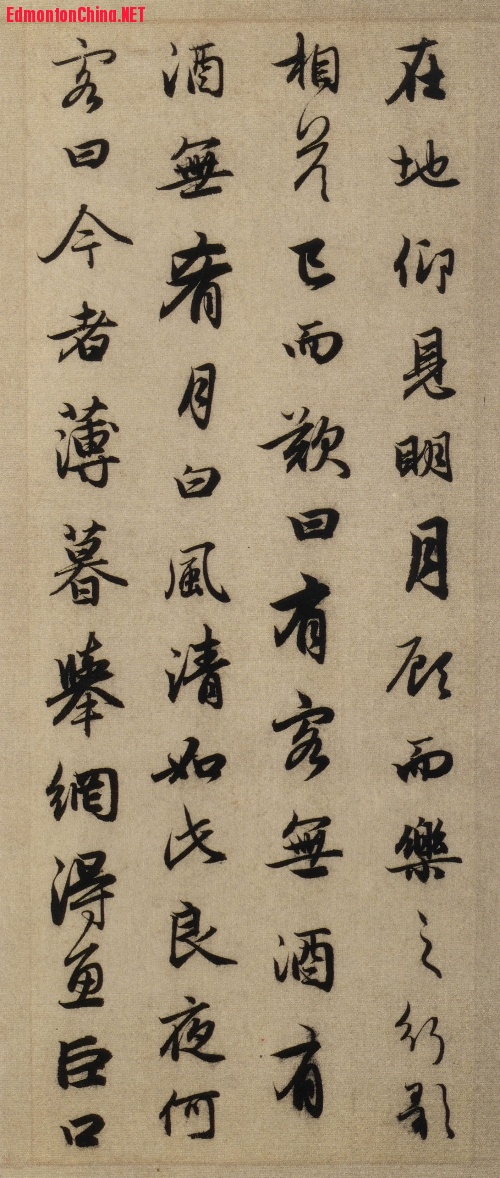 EdmontonChina.NET
在地仰見明月顧而樂之行歌
相答已而歎曰有客無酒有
酒無肴月白風清如此良夜何
客曰今者薄暮舉網得魚巨口